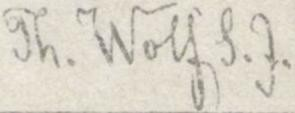 Th. Wolf S. J.